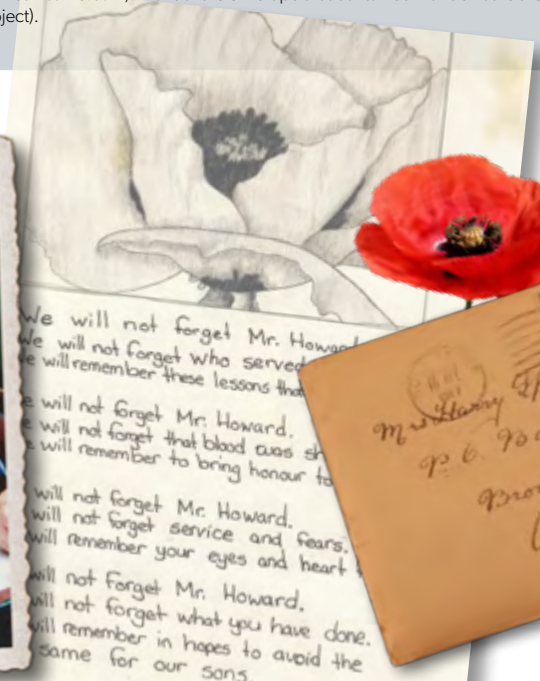 ject).
We will not forget Mr. Howard
We will not forget who served
will remember these lessons that
will not forget Mr. Howard.
will not forget that blood was sh
will remember to bring honour to
will not forget Mr. Howard.
will not forget service and fears.
will remember your eyes and heart
will not forget Mr. Howard.
will not forget what you have done.
will remember in hopes to avoid the
same for our sons.
Mrs Harry
P. O. Bo
Bro